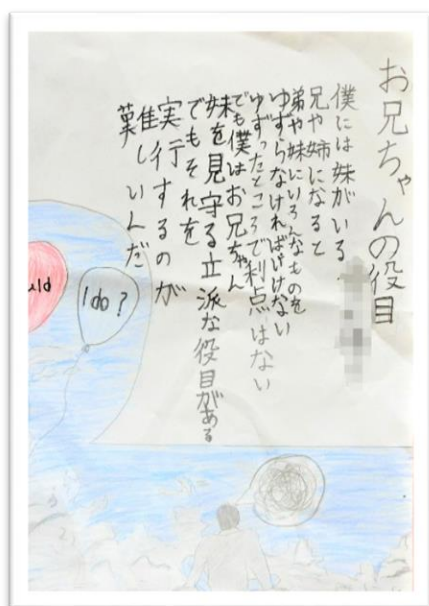 お兄ちゃんの役目
僕には妹がいる
兄や姉になると
弟や妹にいろんなものを
ゆずらなければいけない
ゆずったところで利点はない
でも僕はお兄ちゃん
妹を見守る立派な役目がある
でもそれを
実行するのが
難しいんだ
uld
I do?